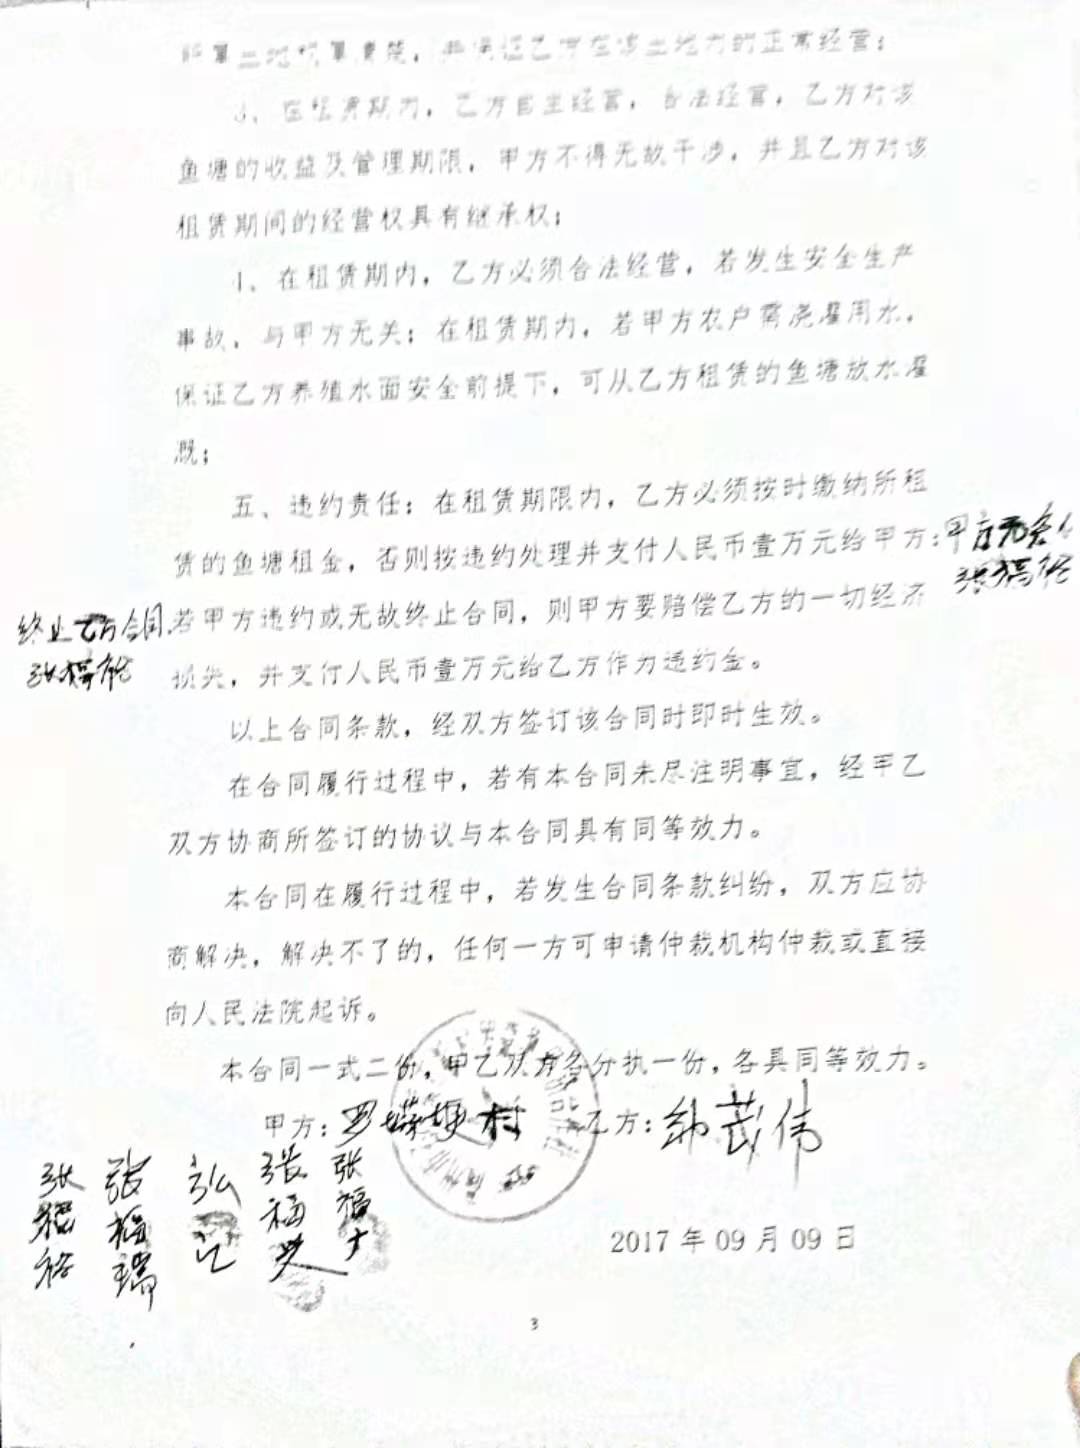 正常经营；
3、在租赁期内，乙方自主经营，合法经营，乙方对该
鱼塘的收益及管理期限，甲方不得无故干涉，并且乙方对该
租赁期间的经营权具有继承权；
4、在租赁期内，乙方必须合法经营，若发生安全生产
事故，与甲方无关；在租赁期内，若甲方农户需浇灌用水，
保证乙方养殖水面安全前提下，可从乙方租赁的鱼塘放水灌
溉；
五、违约责任：在租赁期限内，乙方必须按时缴纳所租
赁的鱼塘租金，否则按违约处理并支付人民币壹万元给甲方；甲方无条
终止乙方合同。若甲方违约或无故终止合同，则甲方要赔偿乙方的一切经济
损失，并支付人民币壹万元给乙方作为违约金。
以上合同条款，经双方签订该合同时即时生效。
在合同履行过程中，若有本合同未尽注明事宜，经甲乙
双方协商所签订的协议与本合同具有同等效力。
本合同在履行过程中，若发生合同条款纠纷，双方应协
商解决，解决不了的，任何一方可申请仲裁机构仲裁或直接
向人民法院起诉。
本合同一式二份，甲乙双方各分执一份，各具同等效力。
甲方： 村 乙方：
张 张 张 张
福 福
瑞
2017年09月09日
3